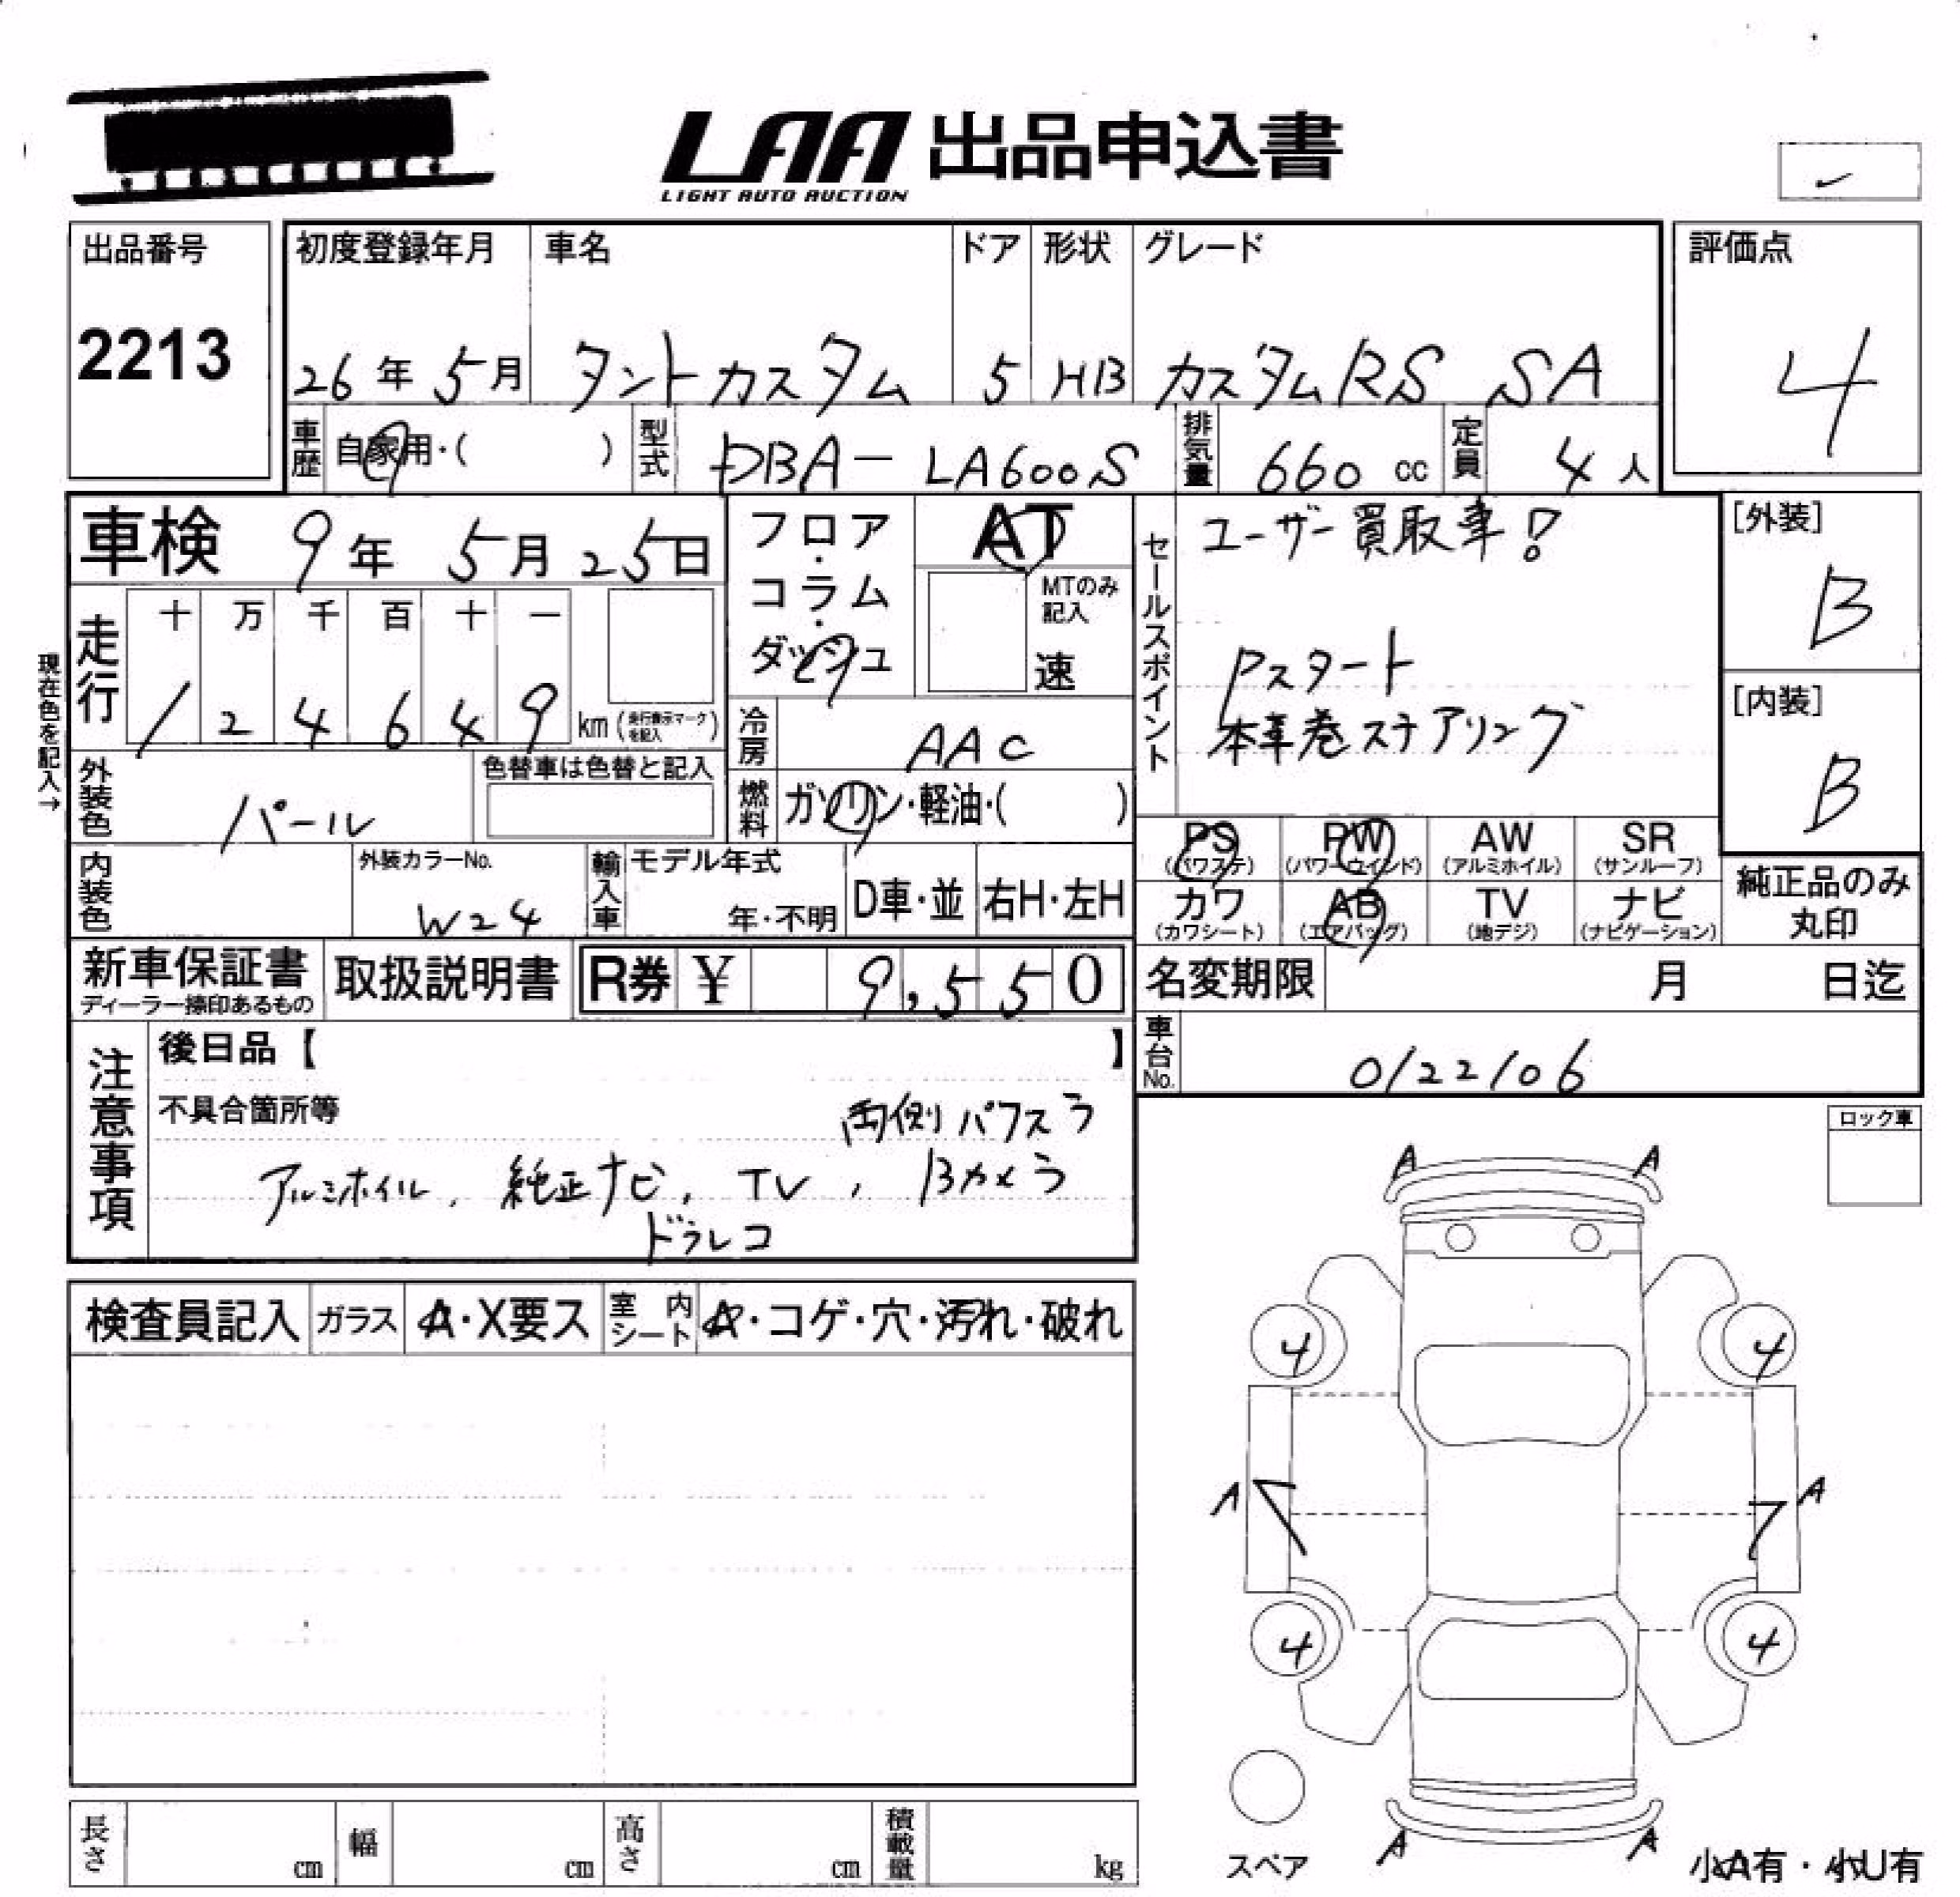 LAA 出品申込書
LIGHT AUTO AUCTION
出品番号
2213
初度登録年月
26年 5月
車名
タントカスタム
ドア
5
形状
HB
グレード
カスタムRS SA
評価点
4
車歴
自家用・( )
型式
DBA-LA600S
排気量
660 cc
定員
4人
車検 9年 5月 25日
走行
十 万 千 百 十 一
1 2 4 6 4 9 km (走行表示マークを記入)
現在色を記入→
外装色
パール
色替車は色替と記入
内装色
外装カラーNo.
W24
フロア・コラム・ダッシュ
AT
MTのみ記入
速
冷房
AAC
燃料
ガソリン・軽油・( )
輸入車
モデル年式
年・不明
D車・並
右H・左H
セールスポイント
ユーザー買取車!
Pスタート
本革巻ステアリング
[外装]
B
[内装]
B
PS (パワステ)
PW (パワーウィンド)
AW (アルミホイル)
SR (サンルーフ)
カワ (カワシート)
AB (エアバッグ)
TV (地デジ)
ナビ (ナビゲーション)
純正品のみ丸印
新車保証書
ディーラー捺印あるもの
取扱説明書
R券 ¥ 9,550
名変期限 月 日迄
車台No.
0122106
注意事項
後日品【 】
不具合箇所等
両側パワスラ
アルミホイル, 純正ナビ, TV, Bカメラ
ドラレコ
ロック車
検査員記入
ガラス
A・X要ス
室内シート
A・コゲ・穴・汚れ・破れ
A A
4 4
A A
4 4
A A
スペア
小A有・小U有
長さ cm
幅 cm
高さ cm
積載量 kg